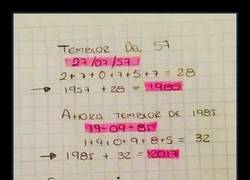 TEMBLOR DEL 57
27/07/57
2+7+0+7+5+7 = 28
→ 1957 + 28 = 1985
AHORA TEMBLOR DE 1985
19-09-85
1+9+0+9+8+5 = 32
→ 1985 + 32 = 2017